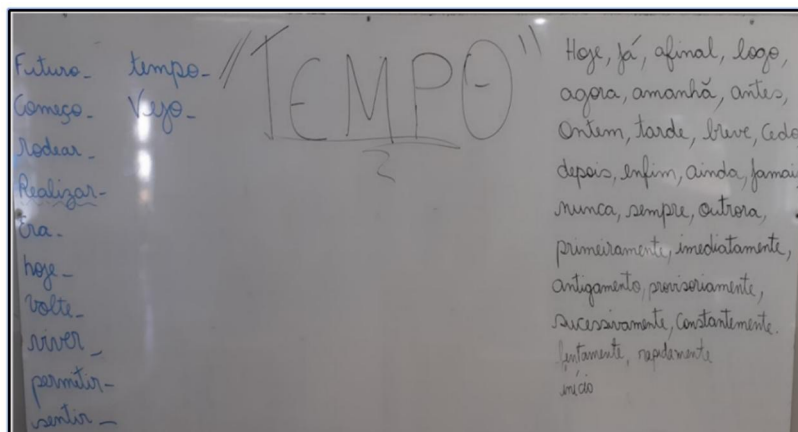 Futuro_ tempo_
Começo_ Vejo_
rodear_
Realizar-
Era_
hoje_
volte_
viver_
permitir-
sentir_
"TEMPO"
Hoje, já, afinal, logo,
agora, amanhã, antes,
Ontem, tarde, breve, Cedo
depois, enfim, ainda, jamais,
nunca, sempre, outrora,
primeiramente, imediatamente,
antigamento, provisoriamente,
sucessivamente, constantemente.
lentamente, rapidamente
início